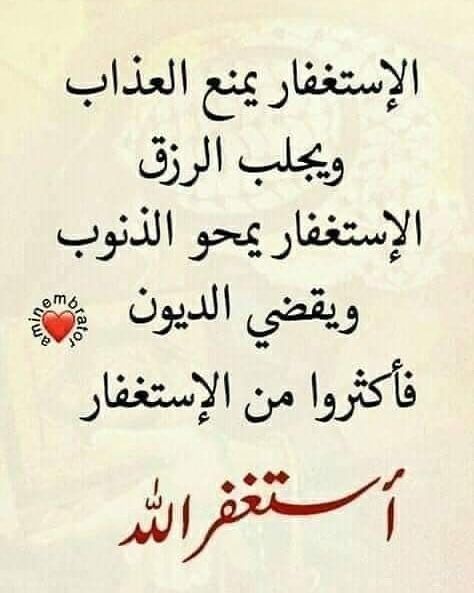 الإستغفار يمنع العذاب
ويجلب الرزق
الإستغفار يمحو الذنوب
ويقضي الديون
aminembrator
فأكثروا من الإستغفار
أستغفر الله